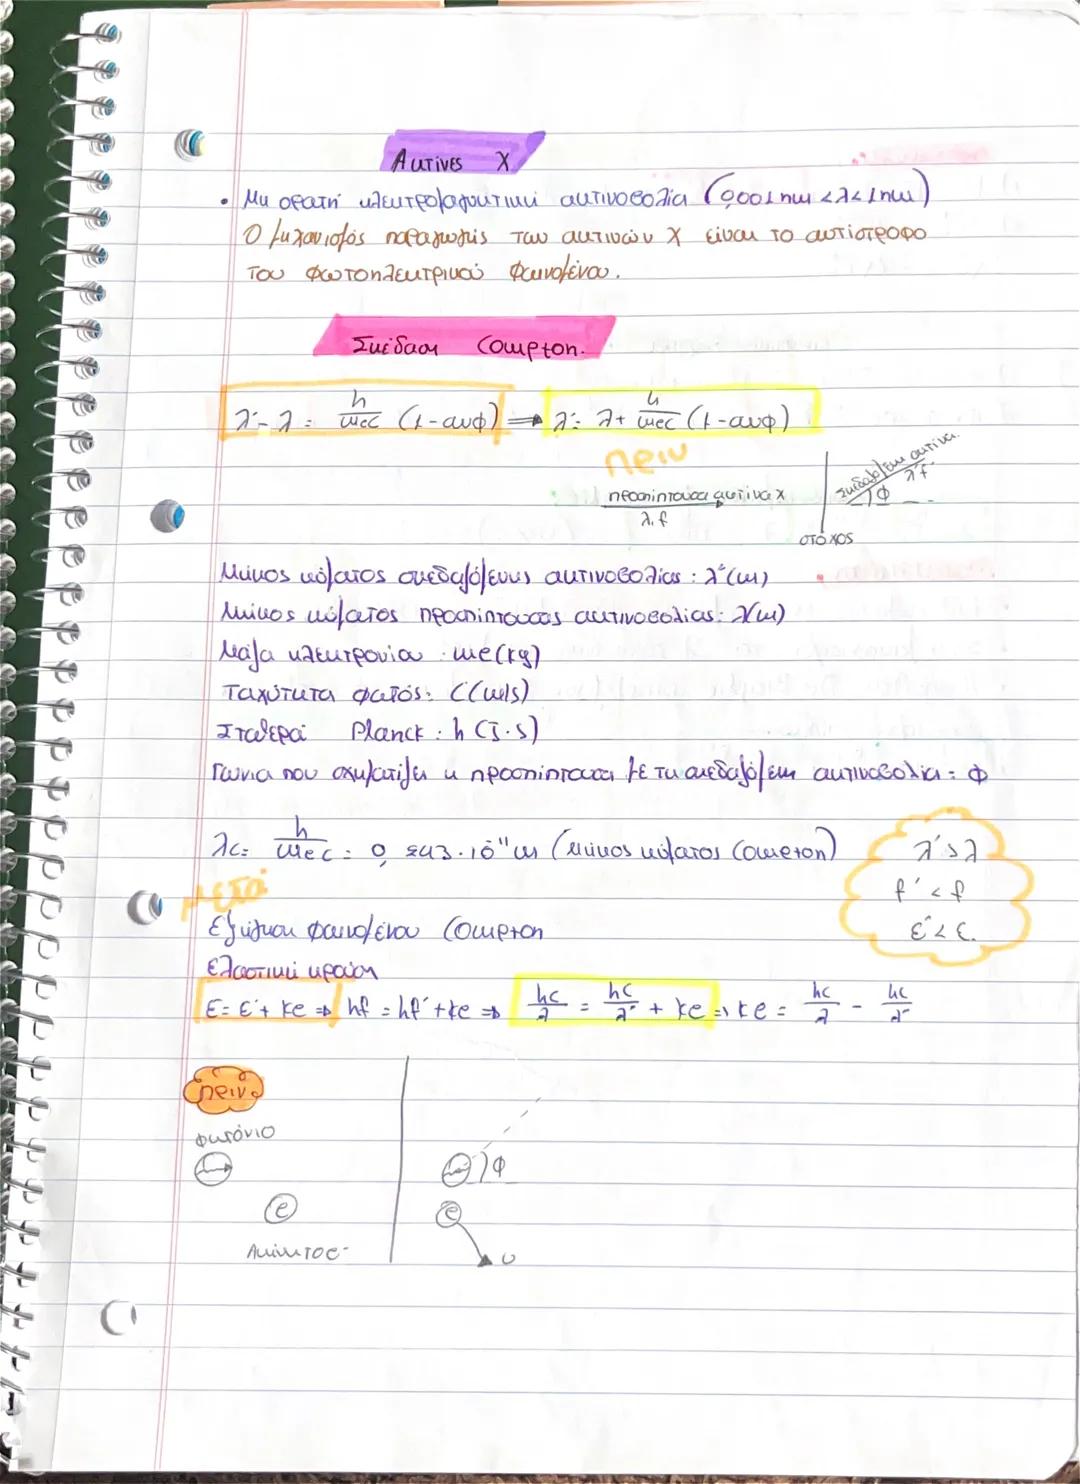 Ακτίνες Χ
• Μη ορατή ηλεκτρομαγνητική ακτινοβολία (0,001nm <λ<1nm)
Ο μηχανισμός παραγωγής των ακτινών Χ είναι το αντίστροφο
του Φωτοηλεκτρικού Φαινομένου.
Σκέδαση Compton.
λ' - λ = h/mec (1-συνφ) ⇒ λ' = λ + h/mec (1-συνφ)
πριν
προσπίπτουσα ακτίνα Χ
λ, f
σκεδαζόμενη ακτίνα.
λ' f'
φ
στόχος
Μήκος κύματος σκεδαζόμενης ακτινοβολίας : λ' (m)
Μήκος κύματος προσπίπτουσας ακτινοβολίας: λ(m)
Μάζα ηλεκτρονίου : me (kg)
Ταχύτητα φωτός: C (m/s)
Σταθερά Planck : h (J·s)
Γωνία που σχηματίζει η προσπίπτουσα με τη σκεδαζόμενη ακτινοβολία = φ
λc = h/mec = 0,243·10⁻¹¹ m (Μήκος κύματος Compton)
λ' > λ
f' < f
Ε' < Ε.
μετά
Εξήγηση φαινομένου Compton
Ελαστική κρούση
Ε = Ε' + Ke ⇒ hf = hf' + ke ⇒ hc/λ = hc/λ' + Ke ⇒ Ke = hc/λ - hc/λ'
πριν
φωτόνιο
φ
e
e
Ακίνητο e⁻
υ